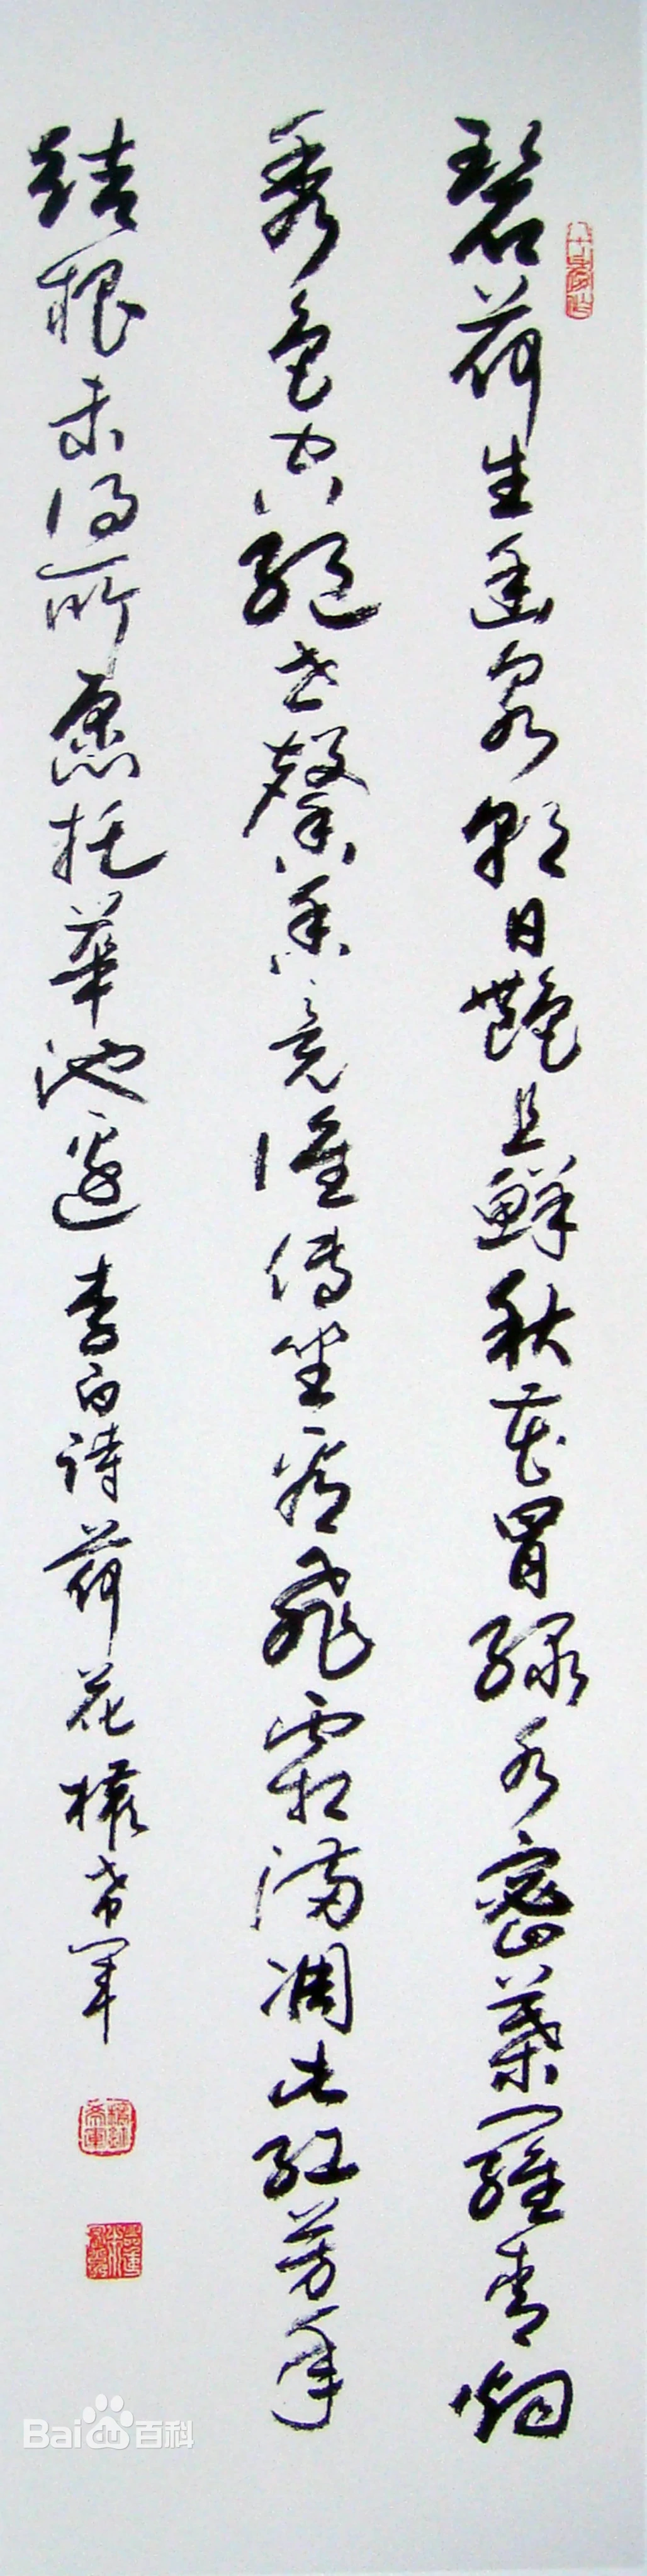 碧荷生幽泉朝日艳且鲜秋花冒绿水密葉羅青烟
秀色空絕世馨香竟誰傳坐看飛霜滿凋此红芳年
結根未得所愿托華池邊李白詩荷花 希军
Bai du 百科